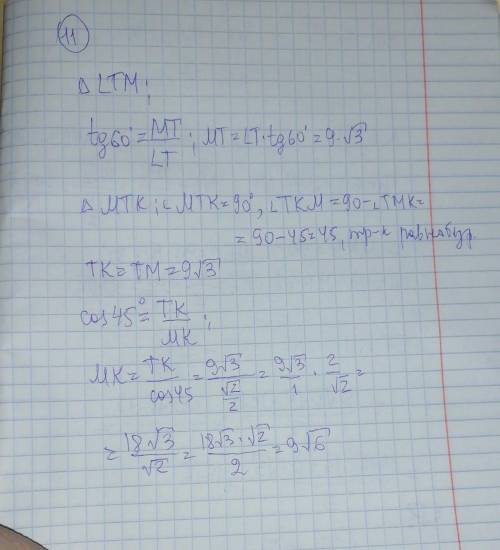 11
Δ LTM;
tg60° = MT/LT ; MT = LT·tg60° = 9·√3
Δ MTK; ∠MTK = 90°, ∠TKM = 90 - ∠TMK =
= 90 - 45 = 45, тр-к равнобедр.
TK = TM = 9√3
cos45° = TK/MK ;
MK = TK/cos45 = 9√3/(√2/2) = 9√3/1 · 2/√2 =
= 18√3/√2 = 18√3·√2/2 = 9√6